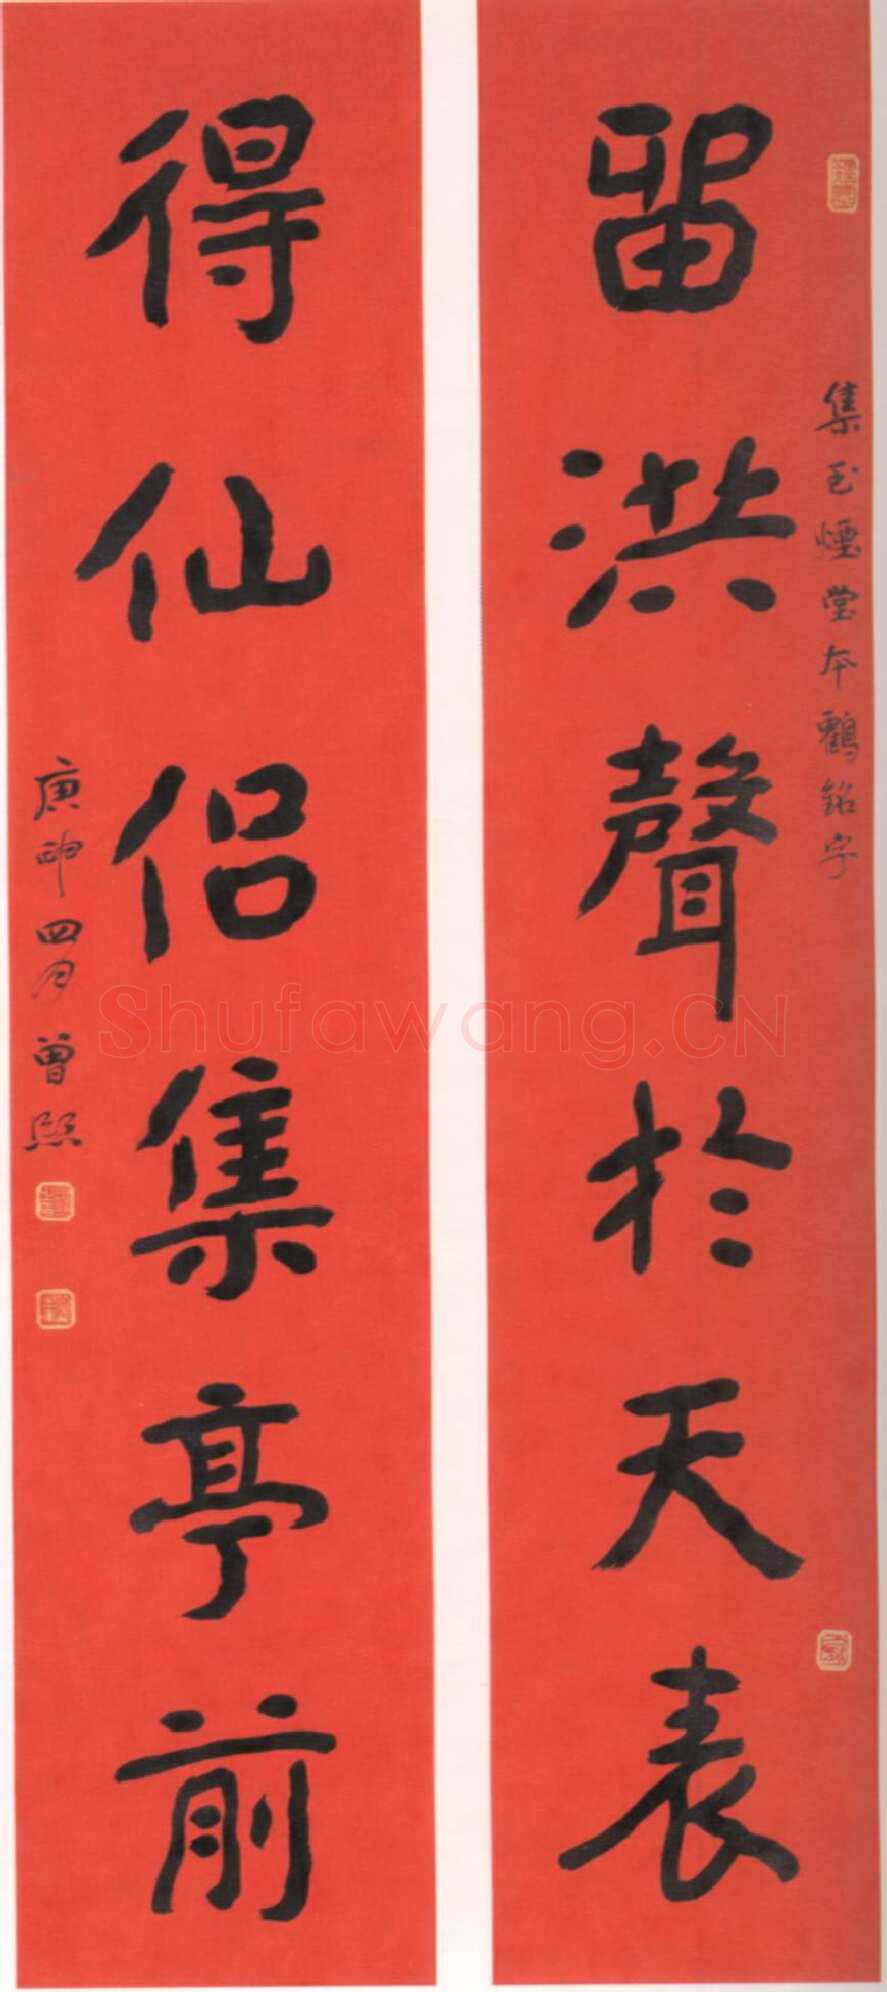 集玉煙堂本鶴銘字
留洪聲於天表
得仙侣集亭前
庚申四月曾熙
Shufawang.CN